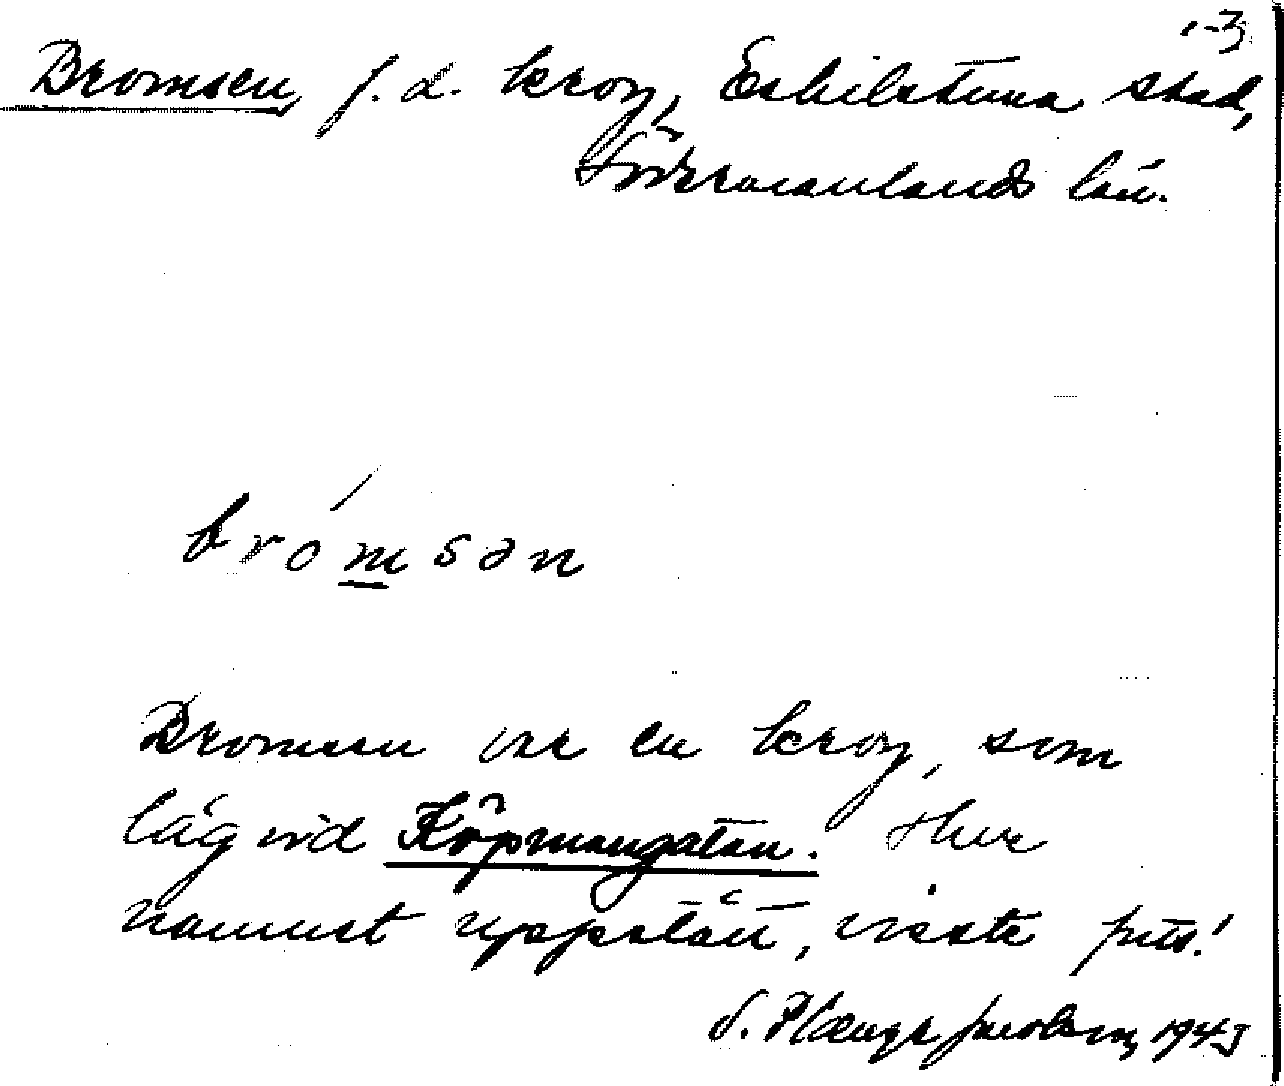 1-3
Bromsen, f. d. krog, Eskilstuna stad,
Södermanlands län.
brómsən
Bromsen var en krog, som
låg vid Köpmangatan. Hur
namnet uppstått, visste
S. Plænge Jacobson, 1945